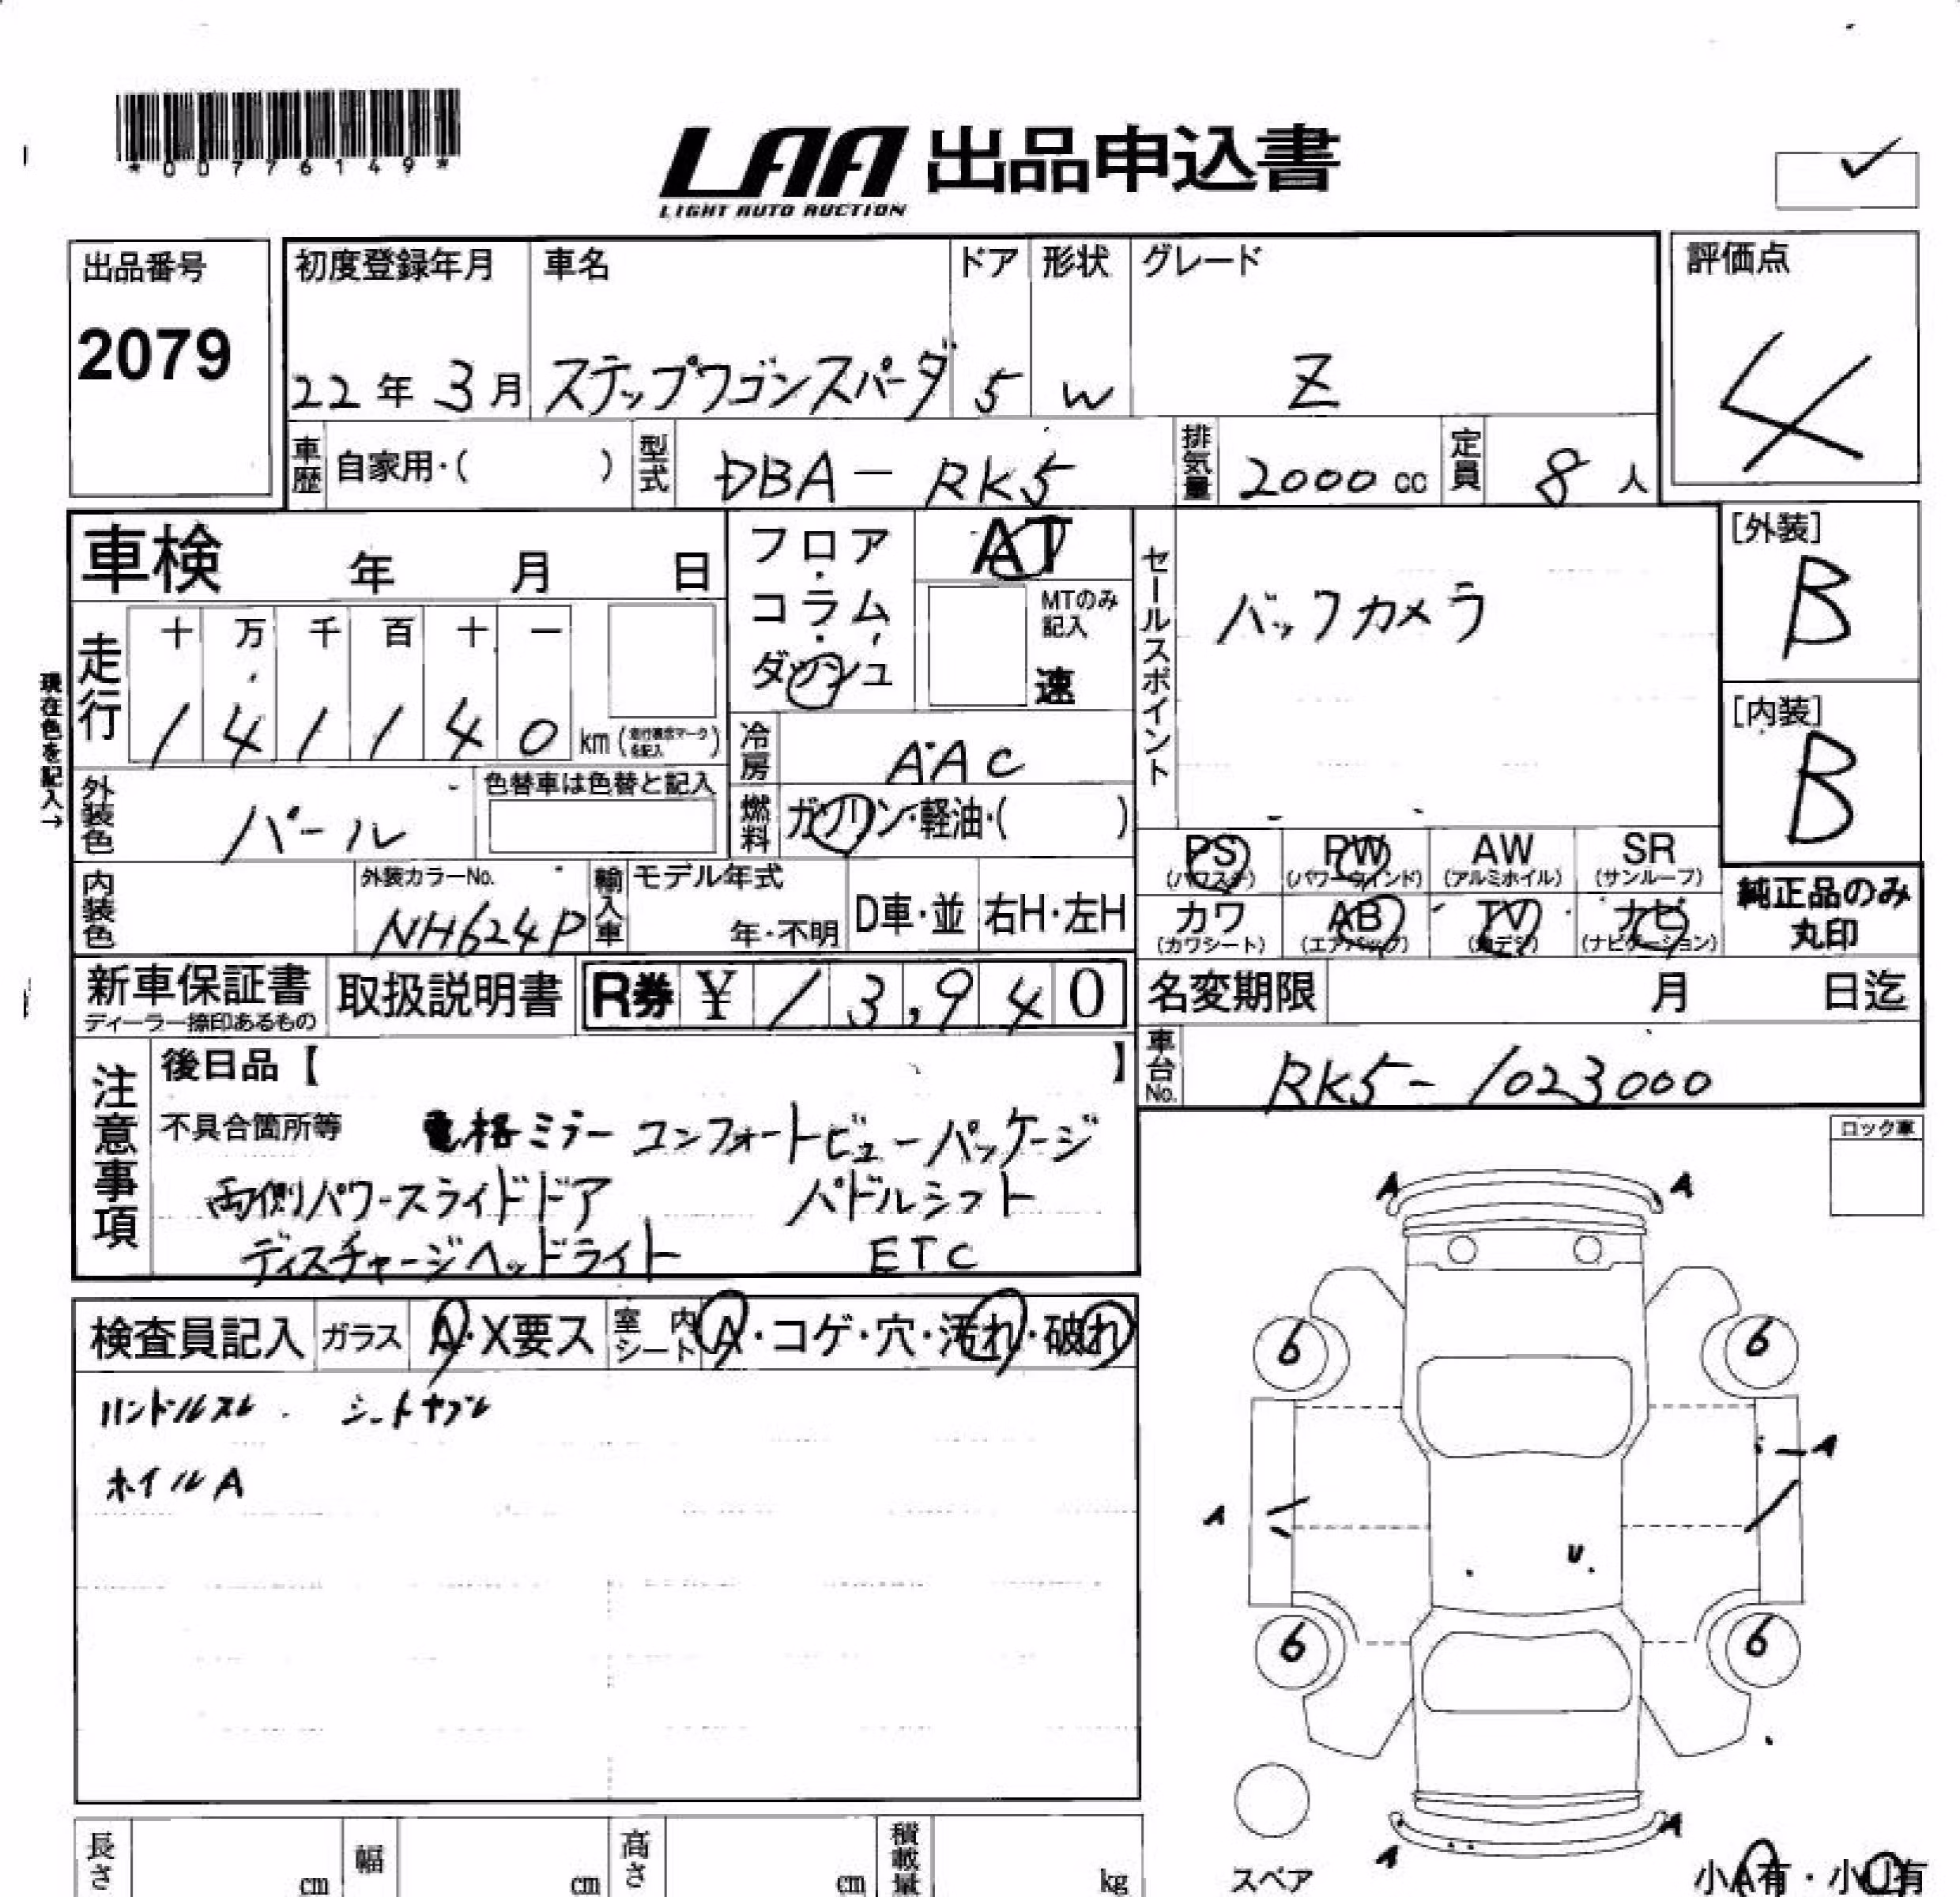 *00776149*
LAA 出品申込書
LIGHT AUTO AUCTION
出品番号
2079
初度登録年月 車名 ドア 形状 グレード
22年 3月 ステップワゴンスパーダ 5 W Z
評価点
4
車歴 自家用・( ) 型式 DBA-RK5 排気量 2000cc 定員 8人
車検 年 月 日
フロア・コラム・ダッシュ
AT
MTのみ記入
速
セールスポイント
バックカメラ
[外装]
B
[内装]
B
走行
十 万 千 百 十 一
1 4 1 1 4 0 km
現在色を記入→
冷房 AAC
外装色 パール
色替車は色替と記入
燃料 ガソリン・軽油・( )
PS PW AW SR
(パワステ) (パワーウインド) (アルミホイル) (サンルーフ)
カワ AB TV ナビ
(カワシート) (エアバッグ) (ナビゲーション)
純正品のみ
丸印
内装色
外装カラーNo.
NH624P
輸入車
モデル年式
年・不明
D車・並
右H・左H
新車保証書
ディーラー捺印あるもの
取扱説明書
R券 ¥13,940
名変期限 月 日迄
車台No. RK5-1023000
注意事項
後日品【 】
不具合箇所等 電格ミラー コンフォートビューパッケージ
両側パワースライドドア パドルシフト
ディスチャージヘッドライト ETC
ロック車
検査員記入 ガラス A・X要ス 室内シート A・コゲ・穴・汚れ・破れ
ハンドルスレ シートヤブレ
ホイルA
A A
6 6
A
A
U
6 6
A
A
スペア
小A有・小U有
長さ cm 幅 cm 高さ cm 積載量 kg